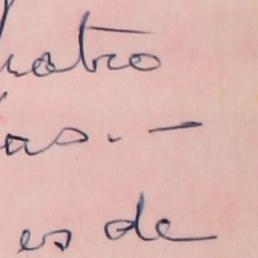 uatro
as. —
es de